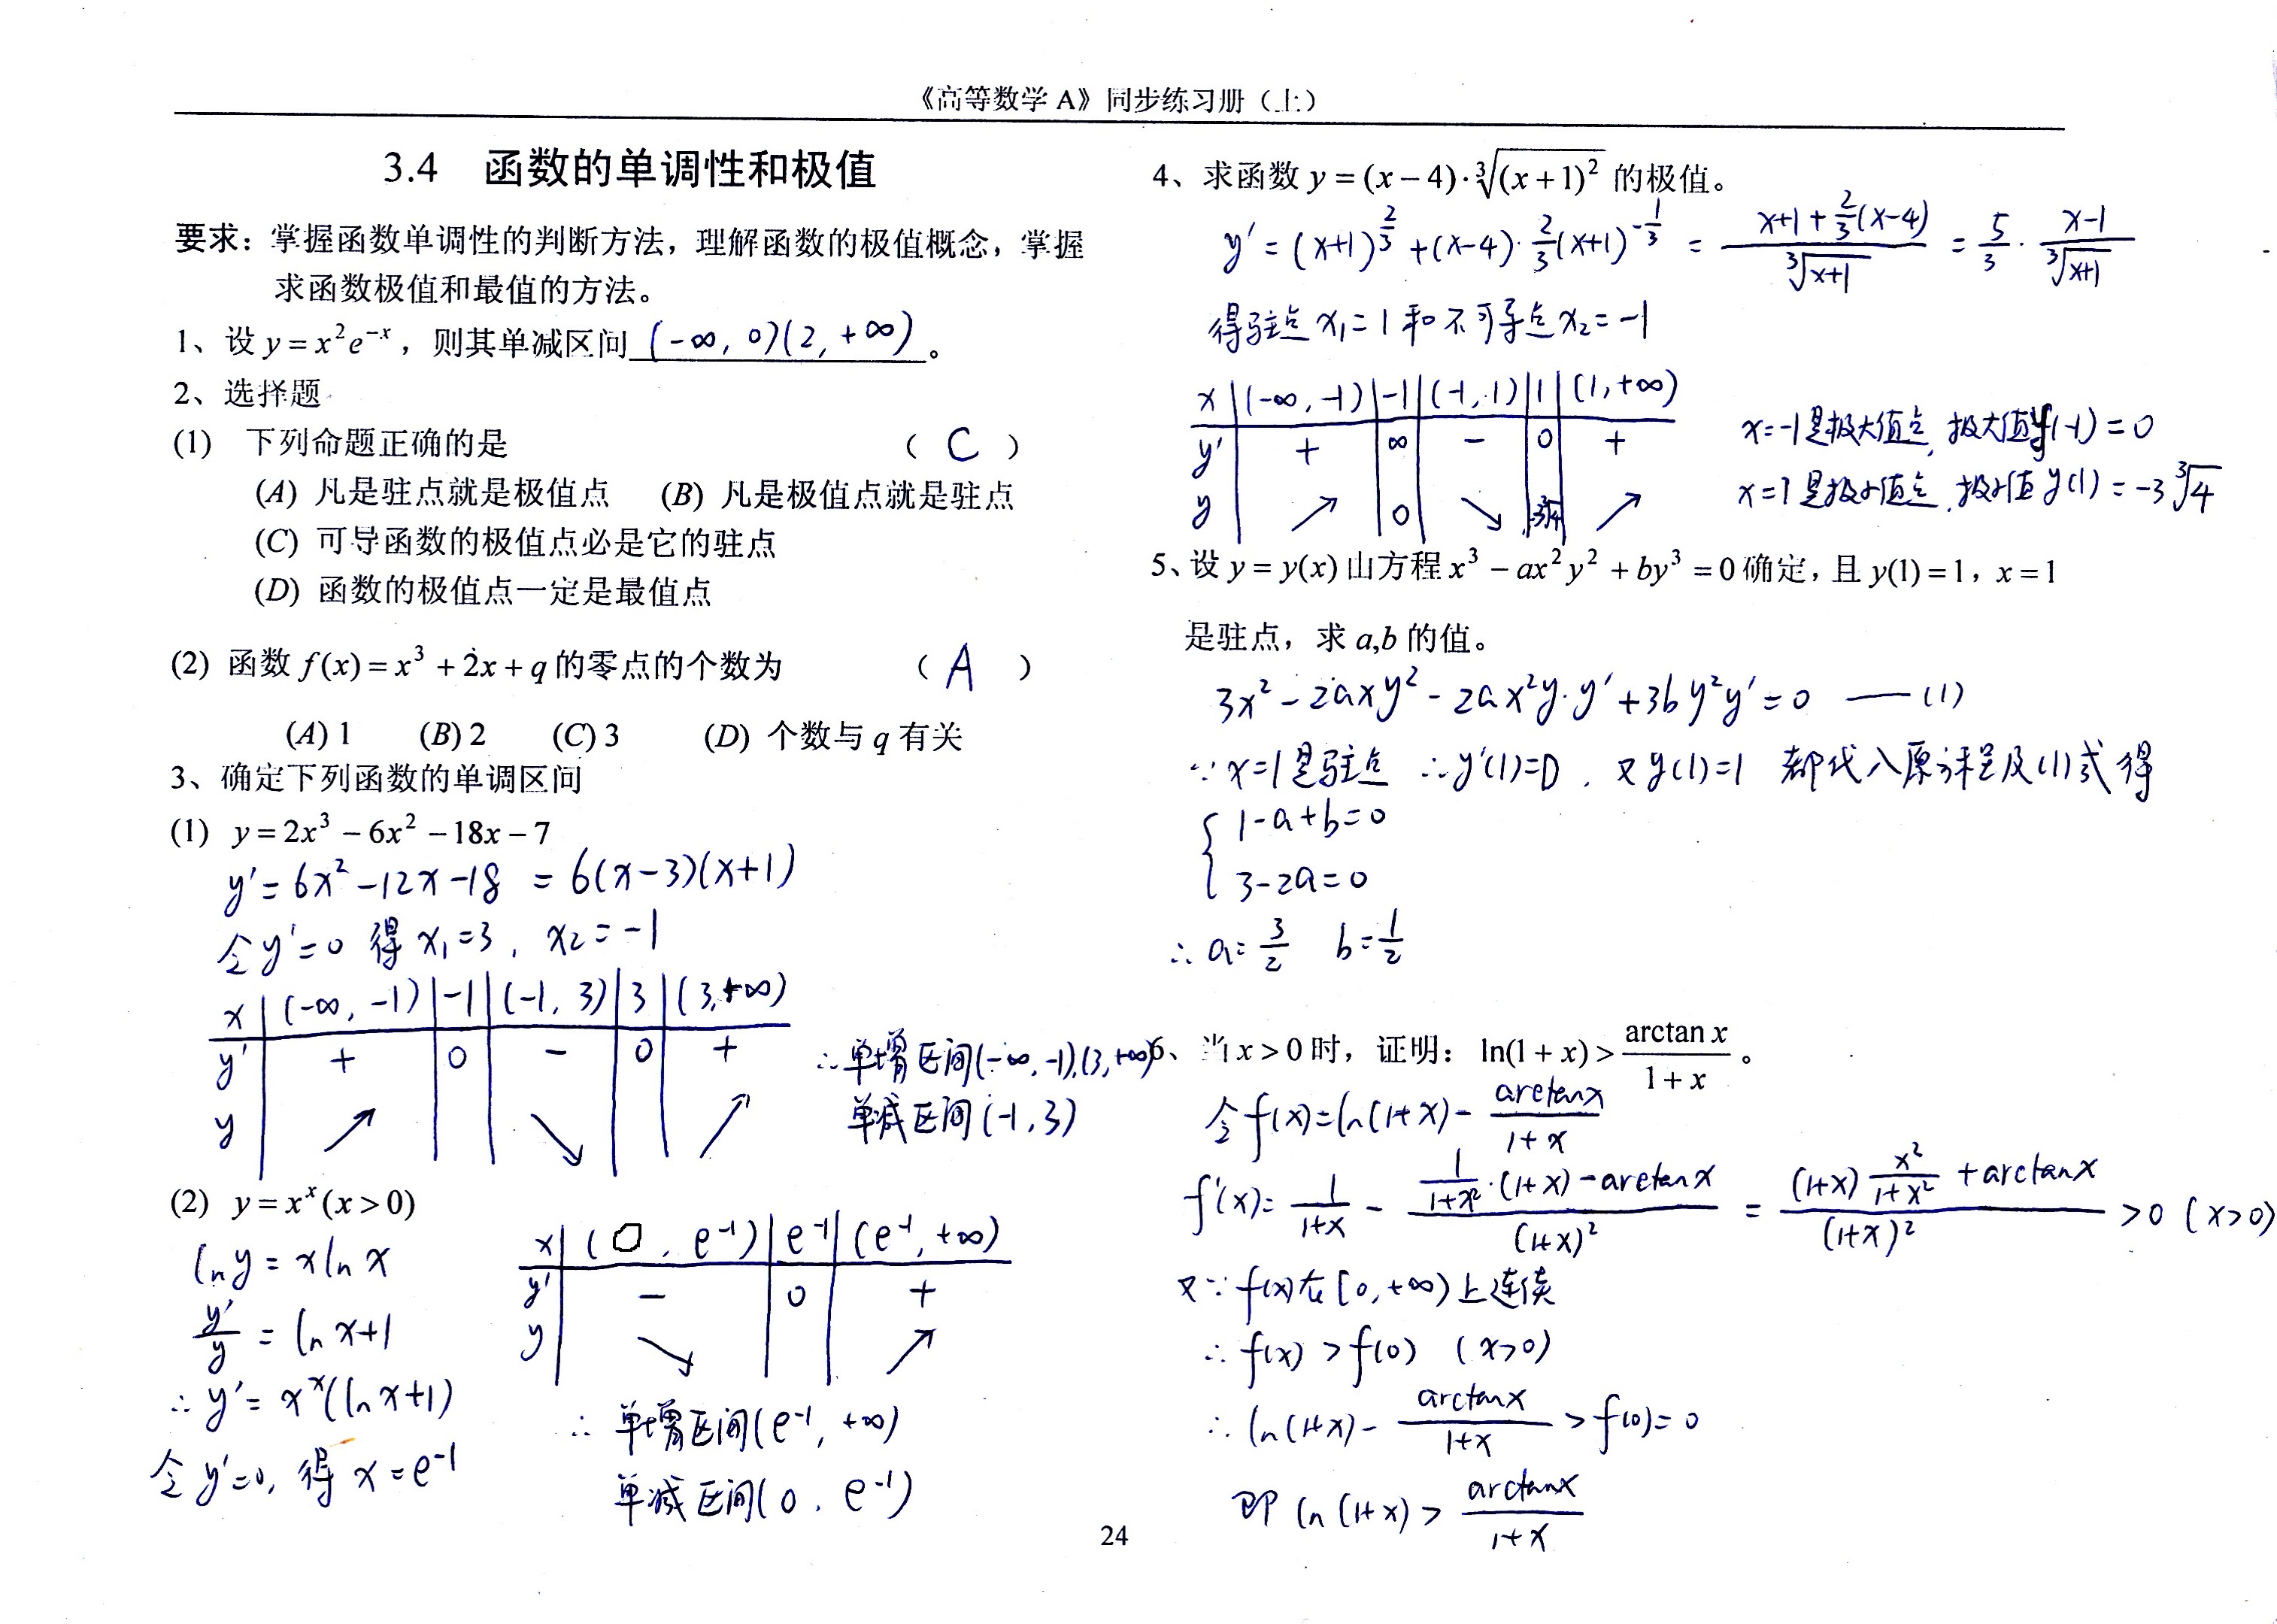 《高等数学 A》同步练习册（上）
3.4 函数的单调性和极值
要求：掌握函数单调性的判断方法，理解函数的极值概念，掌握
求函数极值和最值的方法。
1、设 y = x²e⁻ˣ，则其单减区间 (-∞, 0)(2, +∞)。
2、选择题
(1) 下列命题正确的是 （ C ）
(A) 凡是驻点就是极值点 (B) 凡是极值点就是驻点
(C) 可导函数的极值点必是它的驻点
(D) 函数的极值点一定是最值点
(2) 函数 f(x) = x³ + 2x + q 的零点的个数为 （ A ）
(A) 1 (B) 2 (C) 3 (D) 个数与 q 有关
3、确定下列函数的单调区间
(1) y = 2x³ − 6x² − 18x − 7
y' = 6x² − 12x − 18 = 6(x−3)(x+1)
令 y' = 0 得 x₁ = 3, x₂ = −1
x | (-∞, -1) | -1 | (-1, 3) | 3 | (3, +∞)
y' | + | 0 | − | 0 | +
y | ↗ | | ↘ | | ↗
∴ 单增区间 (-∞, -1), (3, +∞)
单减区间 (-1, 3)
(2) y = xˣ (x > 0)
ln y = x ln x
y'/y = ln x + 1
∴ y' = xˣ(ln x + 1)
令 y' = 0, 得 x = e⁻¹
x | (0, e⁻¹) | e⁻¹ | (e⁻¹, +∞)
y' | − | 0 | +
y | ↘ | | ↗
∴ 单增区间 (e⁻¹, +∞)
单减区间 (0, e⁻¹)
4、求函数 y = (x − 4)·∛((x + 1)²) 的极值。
y' = (x+1)^(2/3) + (x−4)·2/3(x+1)^(-1/3) = (x+1+2/3(x−4))/∛(x+1) = 5/3 · (x−1)/∛(x+1)
得驻点 x₁ = 1 和不可导点 x₂ = −1
x | (-∞, -1) | -1 | (-1, 1) | 1 | (1, +∞)
y' | + | ∞ | − | 0 | +
y | ↗ | 0 | ↘ | -3∛4 | ↗
x = −1 是极大值点, 极大值 y(-1) = 0
x = 1 是极小值点, 极小值 y(1) = −3∛4
5、设 y = y(x) 由方程 x³ − ax²y² + by³ = 0 确定，且 y(1) = 1，x = 1
是驻点，求 a,b 的值。
3x² − 2axy² − 2ax²y·y' + 3by²y' = 0 —— (1)
∵ x = 1 是驻点 ∴ y'(1) = 0, 又 y(1) = 1 都代入原方程及(1)式得
{ 1 − a + b = 0
3 − 2a = 0
∴ a = 3/2 b = 1/2
6、当 x > 0 时，证明：ln(1 + x) > arctan x/(1 + x)。
令 f(x) = ln(1+x) − arctanx/(1+x)
f'(x) = 1/(1+x) − (1/(1+x²)·(1+x) − arctanx)/(1+x)² = ((1+x) x²/(1+x²) + arctanx)/(1+x)² > 0 (x>0)
又∵ f(x) 在 [0, +∞) 上连续
∴ f(x) > f(0) (x>0)
∴ ln(1+x) − arctanx/(1+x) > f(0) = 0
即 ln(1+x) > arctanx/(1+x)
24